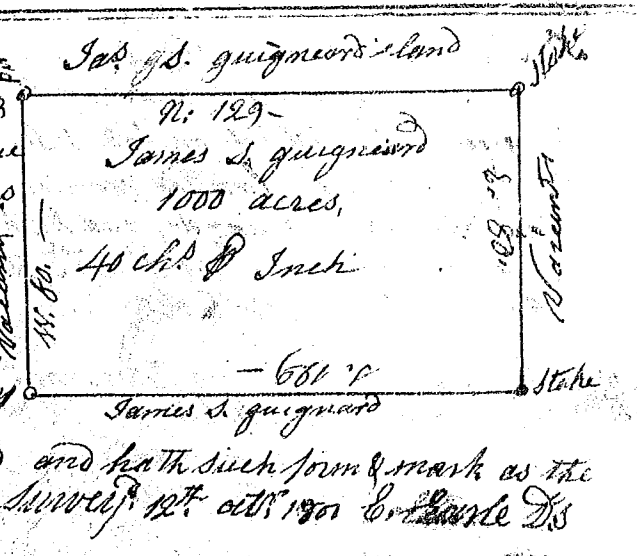 Jas. S. guignard's land
stake
N: 129-
James S. guignard
1000 acres,
40 chs. P Inch
W. 80.
E. 80.
Vacant
S. 199 -
stake
James S. guignard
and hath such form & mark as the
Survey'd. 12th. E. Earle D.S